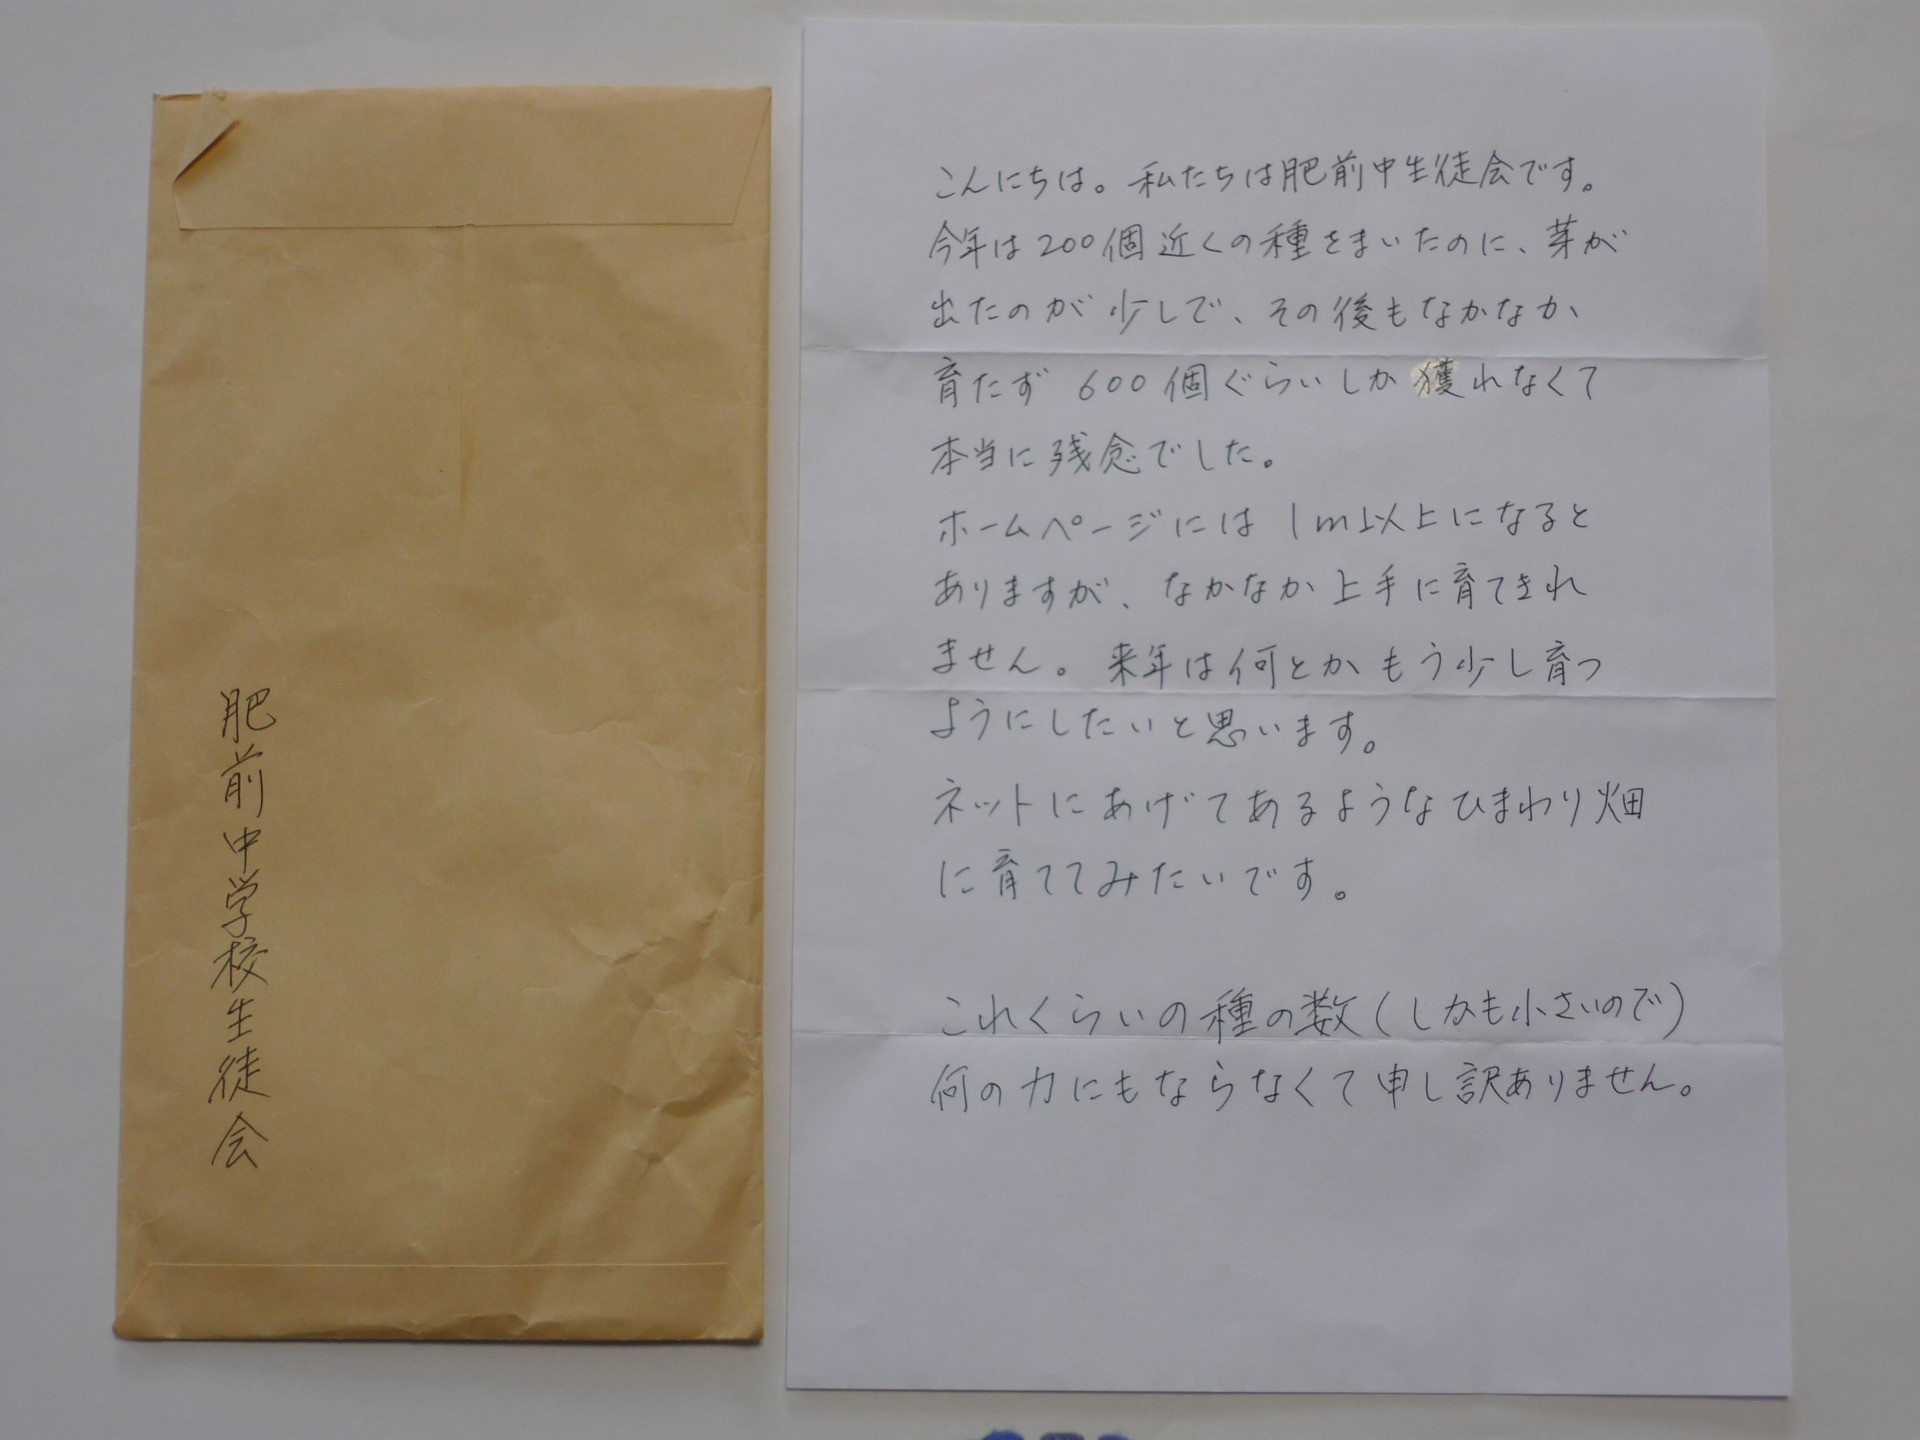 肥前中学校生徒会
こんにちは。私たちは肥前中生徒会です。
今年は200個近くの種をまいたのに、芽が
出たのが少しで、その後もなかなか
育たず600個ぐらいしか獲れなくて
本当に残念でした。
ホームページには1m以上になると
ありますが、なかなか上手に育てきれ
ません。来年は何とかもう少し育つ
ようにしたいと思います。
ネットにあげてあるようなひまわり畑
に育ててみたいです。
これくらいの種の数(しかも小さいので)
何の力にもならなくて申し訳ありません。